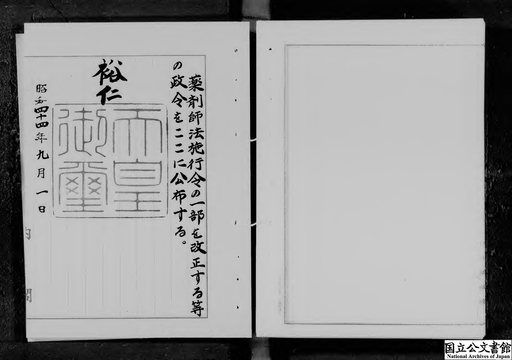 薬剤師法施行令の一部を改正する等
の政令をここに公布する。
裕仁
天皇
御璽
昭和四十四年九月一日
国立公文書館
National Archives of Japan